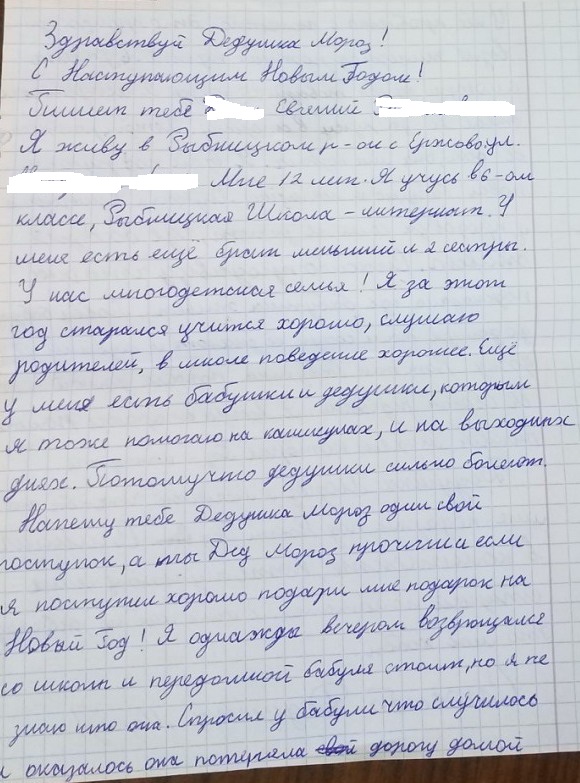 Здравствуй Дедушка Мороз!
С Наступающим Новым Годом!
Пишет тебе Евгений
Я живу в Рыбницком р-он с Ержово ул.
Мне 12 лет. Я учусь в 6-ом
классе, Рыбницкая Школа-интернат. У
меня есть ещё брат меньший и 2 сестры.
У нас многодетская семья! Я за этот
год старался учится хорошо, слушаю
родителей, в школе поведение хорошее. Ещё
у меня есть бабушки и дедушки, которым
я тоже помогаю на каникулах, и на выходных
днях. Потомучто дедушки сильно болеют.
Напешу тебе Дедушка Мороз один свой
поступок, а ты Дед Мороз прочети и если
я поступил хорошо подари мне подарок на
Новый Год! Я однажды вечером возврощался
со школы и передомной бабуля стоит, но я не
знаю кто она. Спросил у бабули что случилось
и оказалось она потеряла дорогу домой